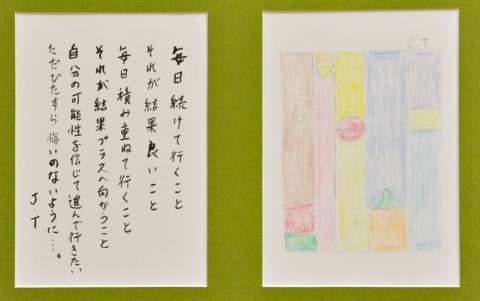 毎日続けて行くこと
それが結果良いこと
毎日積み重ねて行くこと
それが結果プラスへ向かうこと
自分の可能性を信じて進んで行きたい
ただひたすら悔いのないように…。
J.T
J.T